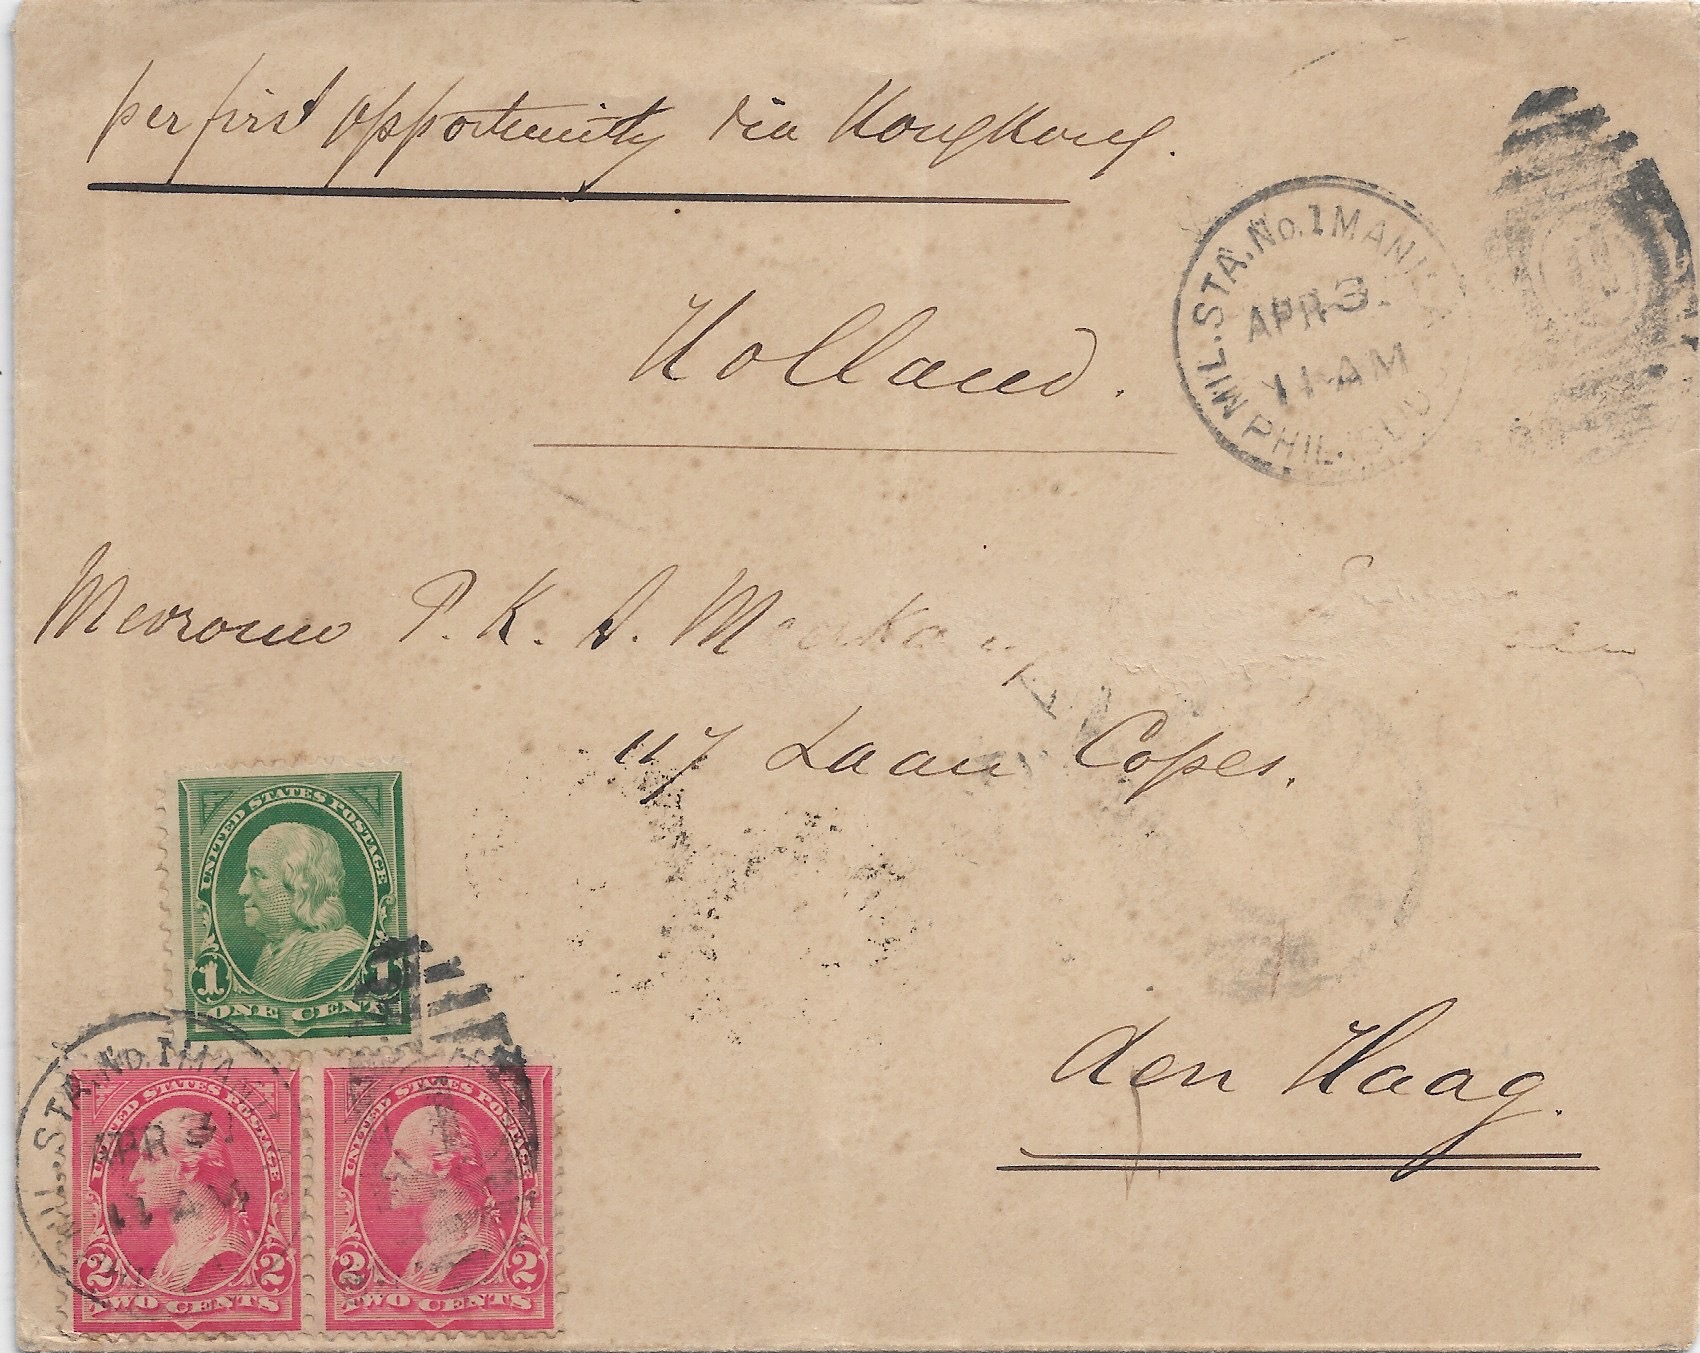 per first opportunity via HongKong.
MIL. STA. No. 1 MANILA
APR 3
11 AM
PHIL. ISL'D
Holland.
Mevrouw P. K. A. Meerkamp
117 Laan Copes.
den Haag.
UNITED STATES POSTAGE
1 1
ONE CENT
STA. No. 1 MA
APR 3
11 AM
UNITED STATES POSTAGE
2 2
TWO CENTS
UNITED STATES POSTAGE
2 2
TWO CENTS